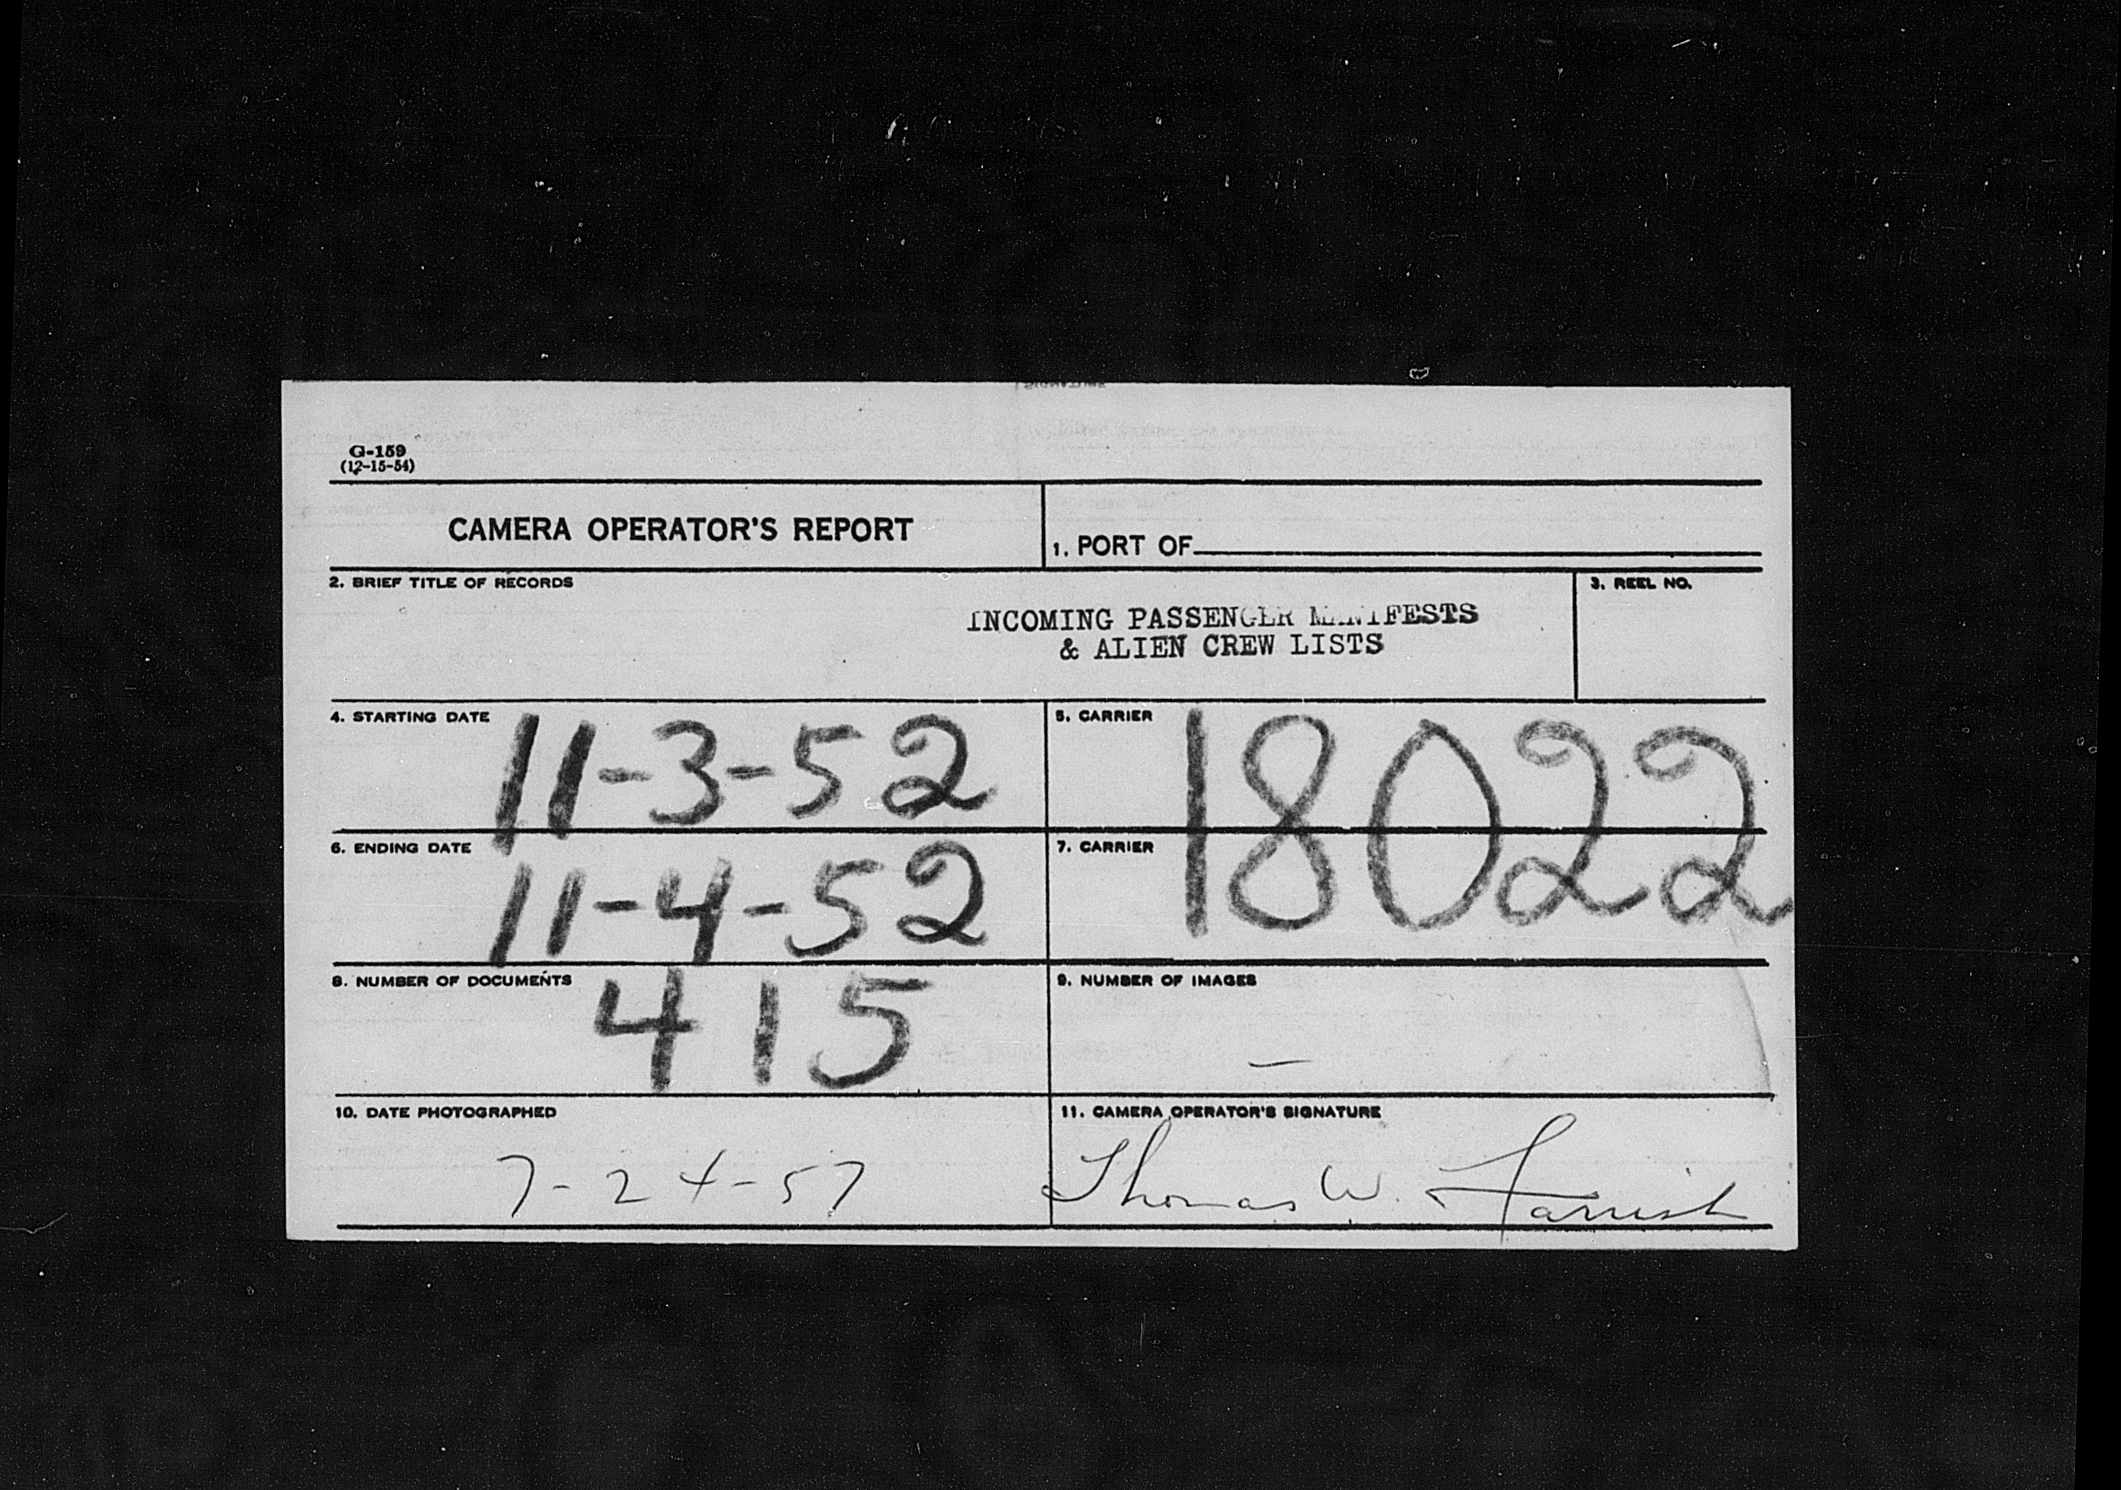 G-159
(12-15-54)
CAMERA OPERATOR'S REPORT
1. PORT OF
2. BRIEF TITLE OF RECORDS
3. REEL NO.
INCOMING PASSENGER MANIFESTS
& ALIEN CREW LISTS
4. STARTING DATE
11-3-52
5. CARRIER
18022
6. ENDING DATE
11-4-52
7. CARRIER
8. NUMBER OF DOCUMENTS
415
9. NUMBER OF IMAGES
–
10. DATE PHOTOGRAPHED
7-24-57
11. CAMERA OPERATOR'S SIGNATURE
Thomas W.